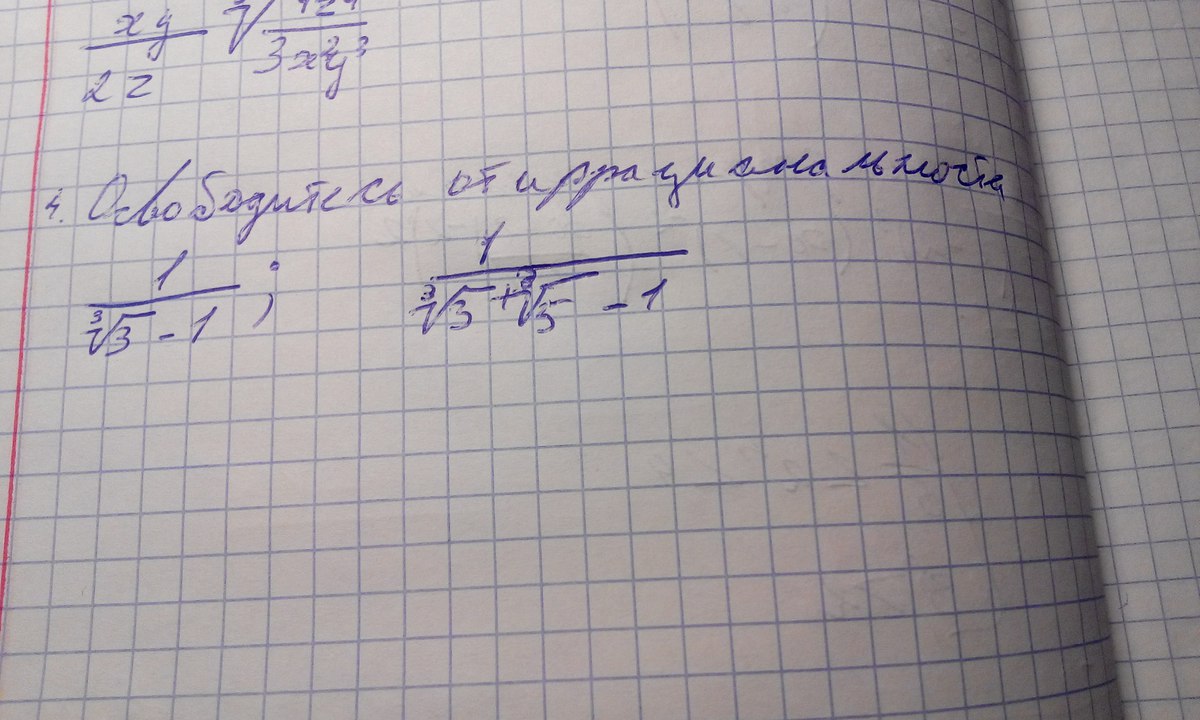 xy
2z
3x²y³
4. Освободитесь от иррациональности
1/(∛3 - 1) ; 1/(∛3 + ∛5 - 1)